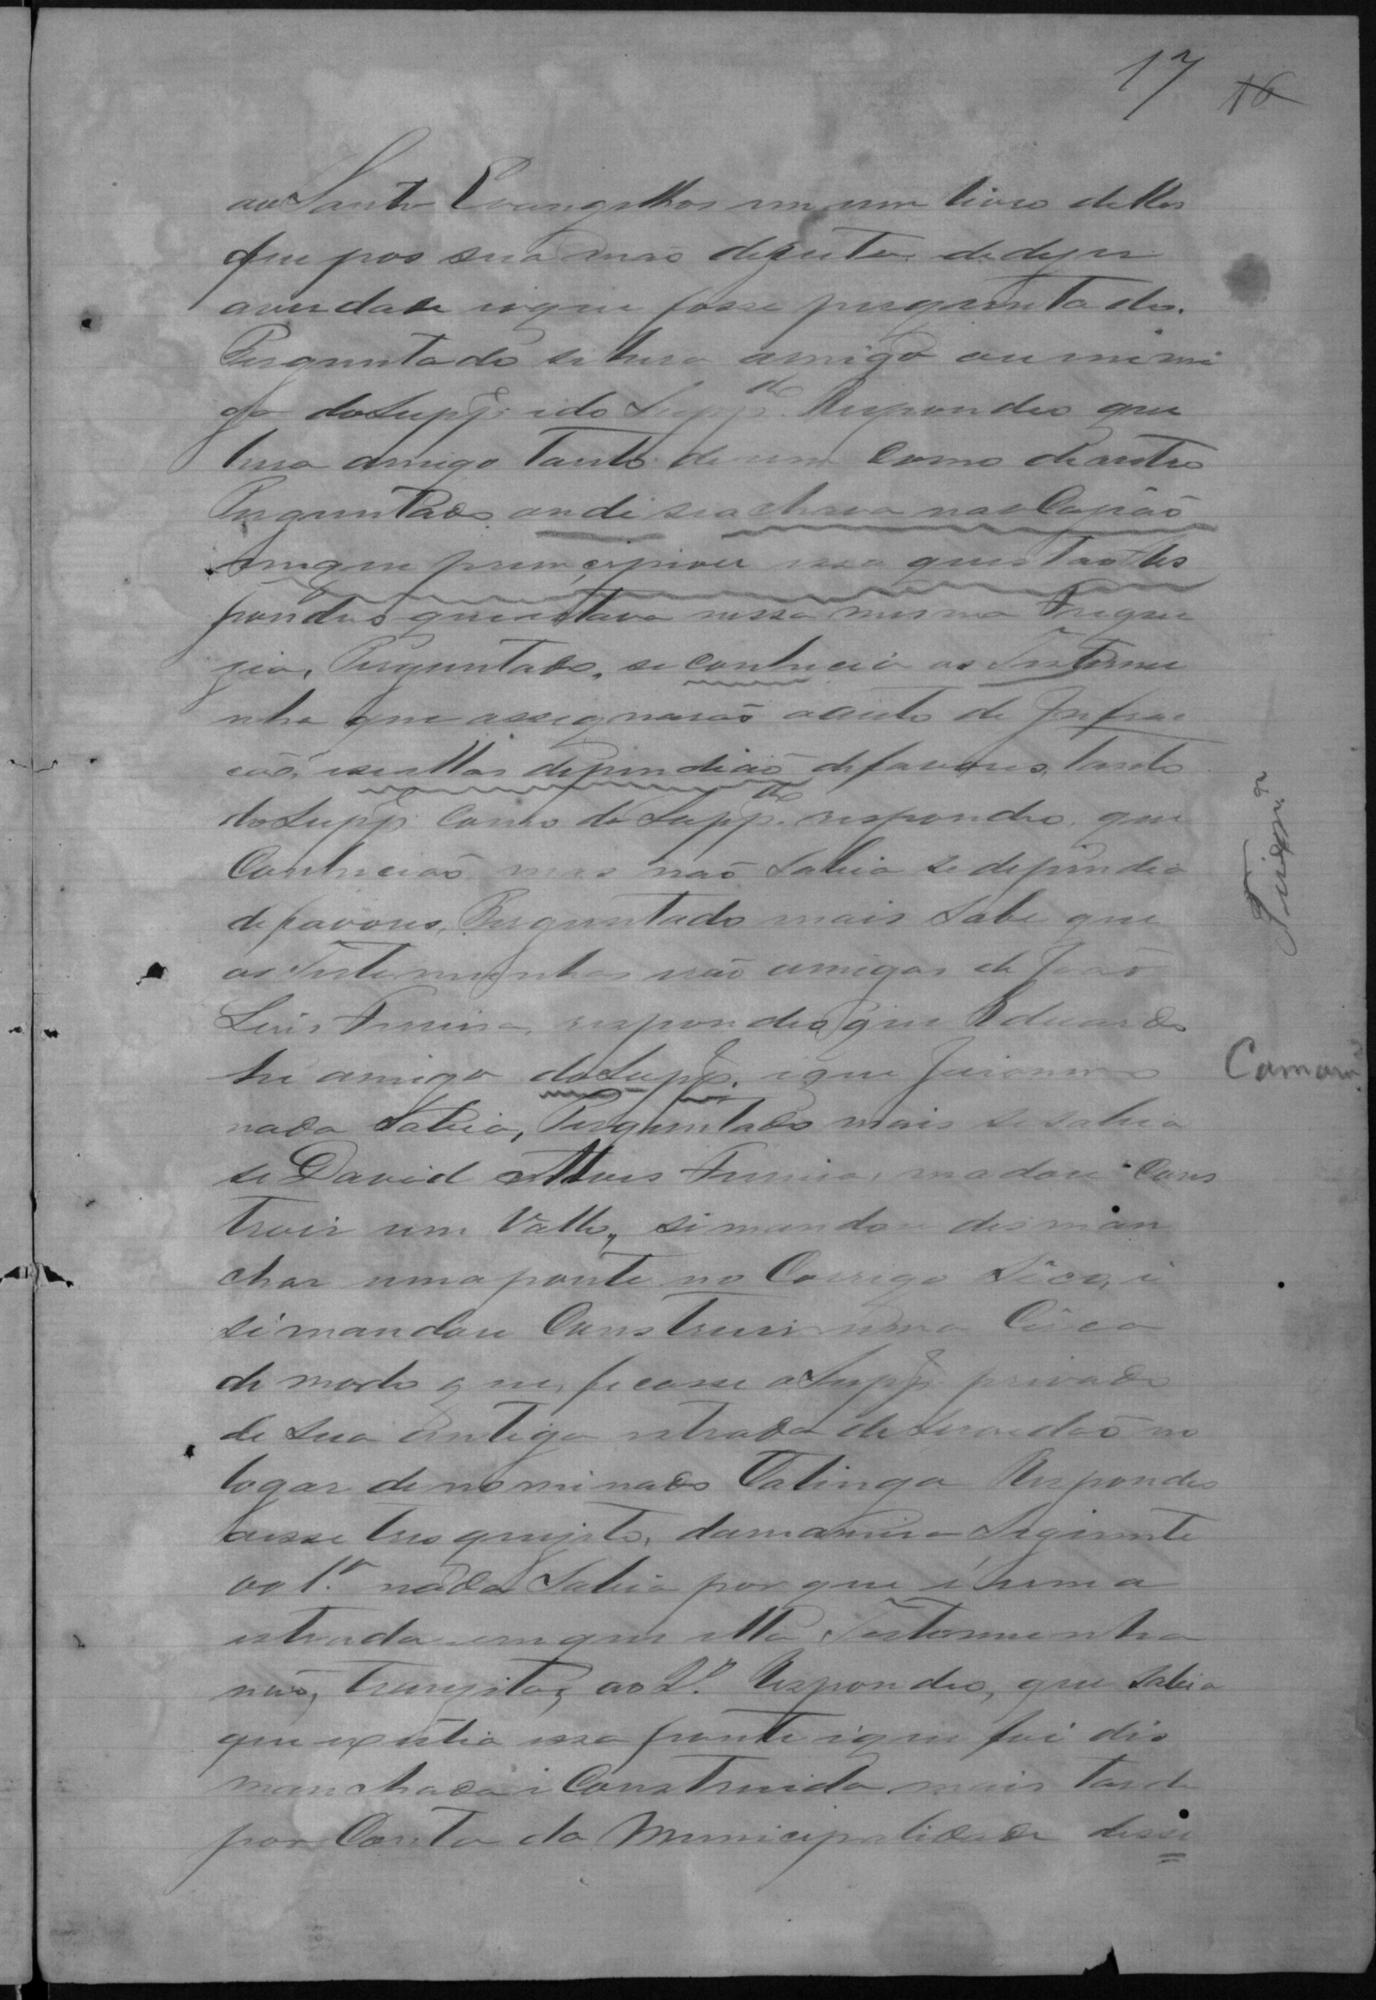 17 16
ao Santo Evangelhos em um livro delles
que pos sua mão direita dedizer
averdade eoque fosse preguntado.
Perguntado si hera amigo ou inimi
go do Supp.e edo Supp.do Respondeo que
hera amigo tanto de um como deoutro
Preguntado onde seachava naocazião
emque principiou essa questão Res
pondeo queestava nessa mesma Fregue
zia, Perguntado, se conhecia as Testemu
nha que assegnarão oauto de Infra
cão, esiellas dependião defavores, tanto
do Supp.e Como do Supp.do respondeo, que
Conhecião mas não Sabia se dependia
de favores, Perguntado mais Sabe que
as Testemunhas erão amigas de João
Luis Ferreira, respondeo, que Eduardo
hé amigo do Supp.e, eque Jeronimo
nada Sabia, Perguntado mais se sabia
se David Alves Ferreira, madou Cons
truir um Vallo, simandou desman
char uma ponte no Corrego Sêco, e
si mandou Construir uma Cêrca
de modo que, ficasse o Supp.e privado
de Sua antiga estrada de Servedão no
logar denominado Tatinga Respondeo
aesse tres quezito, damaneira Seginte
ao 1.º nada Sabia por que é uma
estrada emque ella Testemunha
não, tranzita, ao 2.º Respondeo, que Sabia
que existia essa ponte eque foi dis
manchada e Construida mais tarde
por Conta da Municipalidade desse
Camara